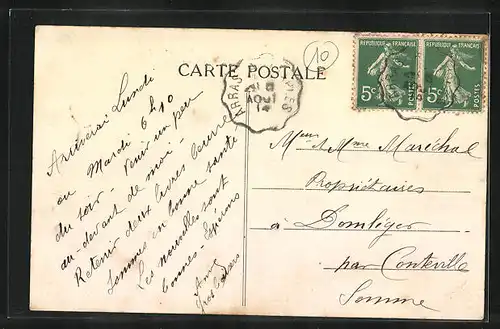 10
CARTE POSTALE
RÉPUBLIQUE FRANÇAISE
5c
POSTES
RÉPUBLIQUE FRANÇAISE
5c
POSTES
ARRAS
AOUT
14
Arriverai Lundi
ou Mardi 6h10
du soir - Venir un peu
au-devant de moi -
Retenir deux livres beurre
Sommes en bonne santé
Les nouvelles sont
bonnes - Espérons
Mme Maréchal
Propriétaires
à Domléger
par Conteville
Somme